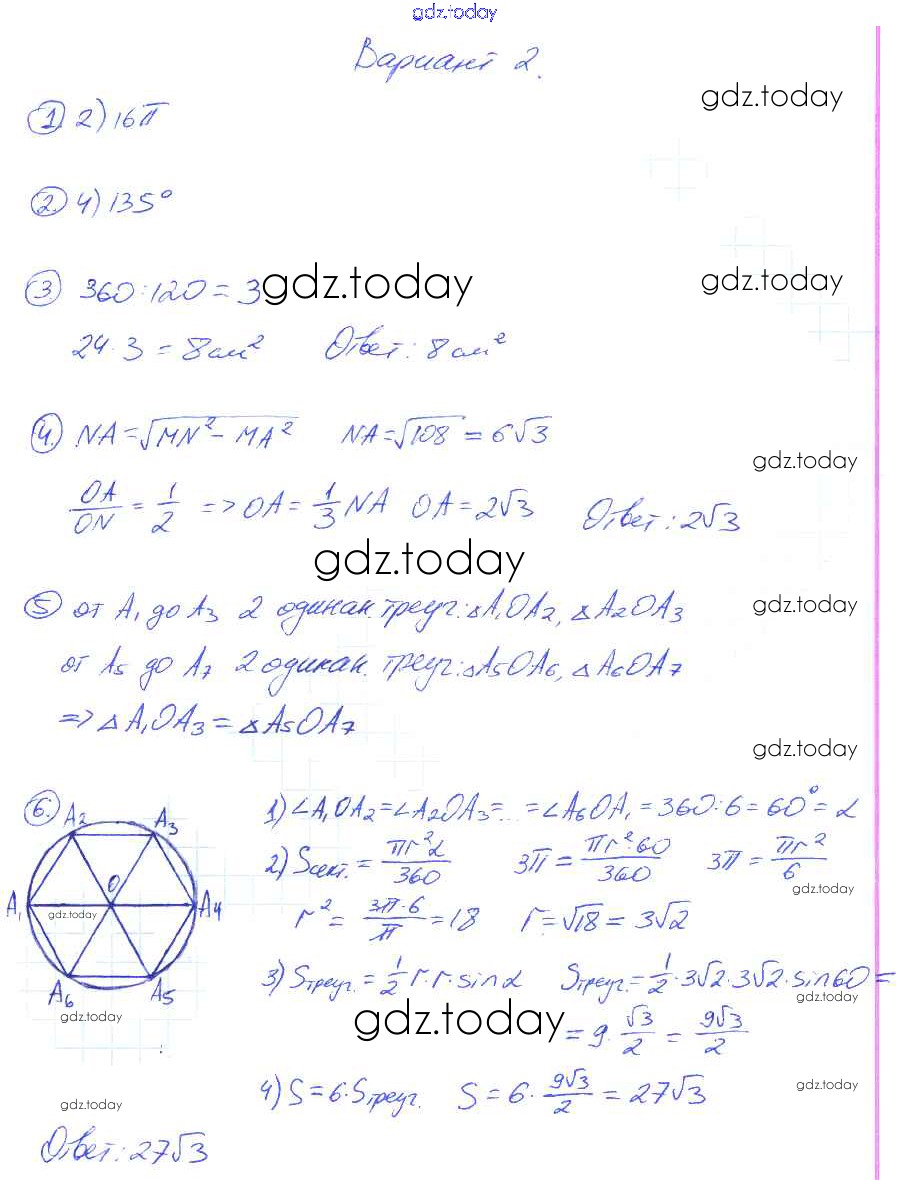 gdz.today
Вариант 2.
gdz.today
1 2) 16π
2. 4) 135°
3. 360 : 120 = 3 gdz.today gdz.today
24 · 3 = 8 см² Ответ: 8 см²
4. NA = √(MN² - MA²) NA = √108 = 6√3
gdz.today
OA/ON = 1/2 => OA = 1/3 NA OA = 2√3 Ответ: 2√3
gdz.today
5 от A₁ до A₃ 2 одинак. треуг.: △A₁OA₂, △A₂OA₃ gdz.today
от A₅ до A₇ 2 одинак. треуг.: △A₅OA₆, △A₆OA₇
=> △A₁OA₃ = △A₅OA₇
gdz.today
6. A₂ A₃ O A₁ A₄ A₆ A₅
gdz.today
1) ∠A₁OA₂ = ∠A₂OA₃ = ... = ∠A₆OA₁ = 360 : 6 = 60° = α
2) Sсект. = πr²α/360 3π = πr²·60/360 3π = πr²/6
gdz.today
r² = 3π·6/π = 18 r = √18 = 3√2
3) Sтреуг. = 1/2 r·r·sinα Sтреуг. = 1/2 · 3√2 · 3√2 · sin60 =
gdz.today
gdz.today gdz.today
= 9 · √3/2 = 9√3/2
4) S = 6·Sтреуг. S = 6 · 9√3/2 = 27√3
gdz.today
gdz.today
Ответ: 27√3